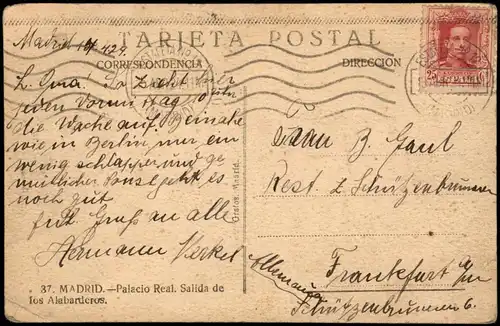 TARJETA POSTAL
CORRESPONDENCIA
DIRECCION
Madrid
L. Oma! So zieht hier
jeden Vormittag
die Wache auf. Beinahe
wie in Berlin, nur ein
wenig schlapper und ge
mütlicher. Sonst geht es
noch gut
Gruß an alle
Hermann
Frau B. Gaul
Rest. z. Schützenbrunnen
Frankfurt a/m
Schützenbrunnen 6.
Allemania
Grafos. Madrid.
25
37. MADRID.—Palacio Real. Salida de
los Alabarderos.